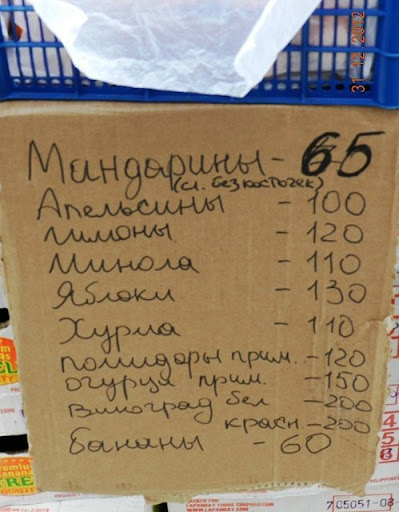 31 12 2012
Мандарины - 65
(сл. без косточек)
Апельсины - 100
Лимоны - 120
Минола - 110
Яблоки - 130
Хурма - 110
помидоры прим. - 120
огурцы прим. - 150
Виноград бел - 200
красн - 200
Бананы - 60
LAPANDAY FOODS CORPORATION
705051-08